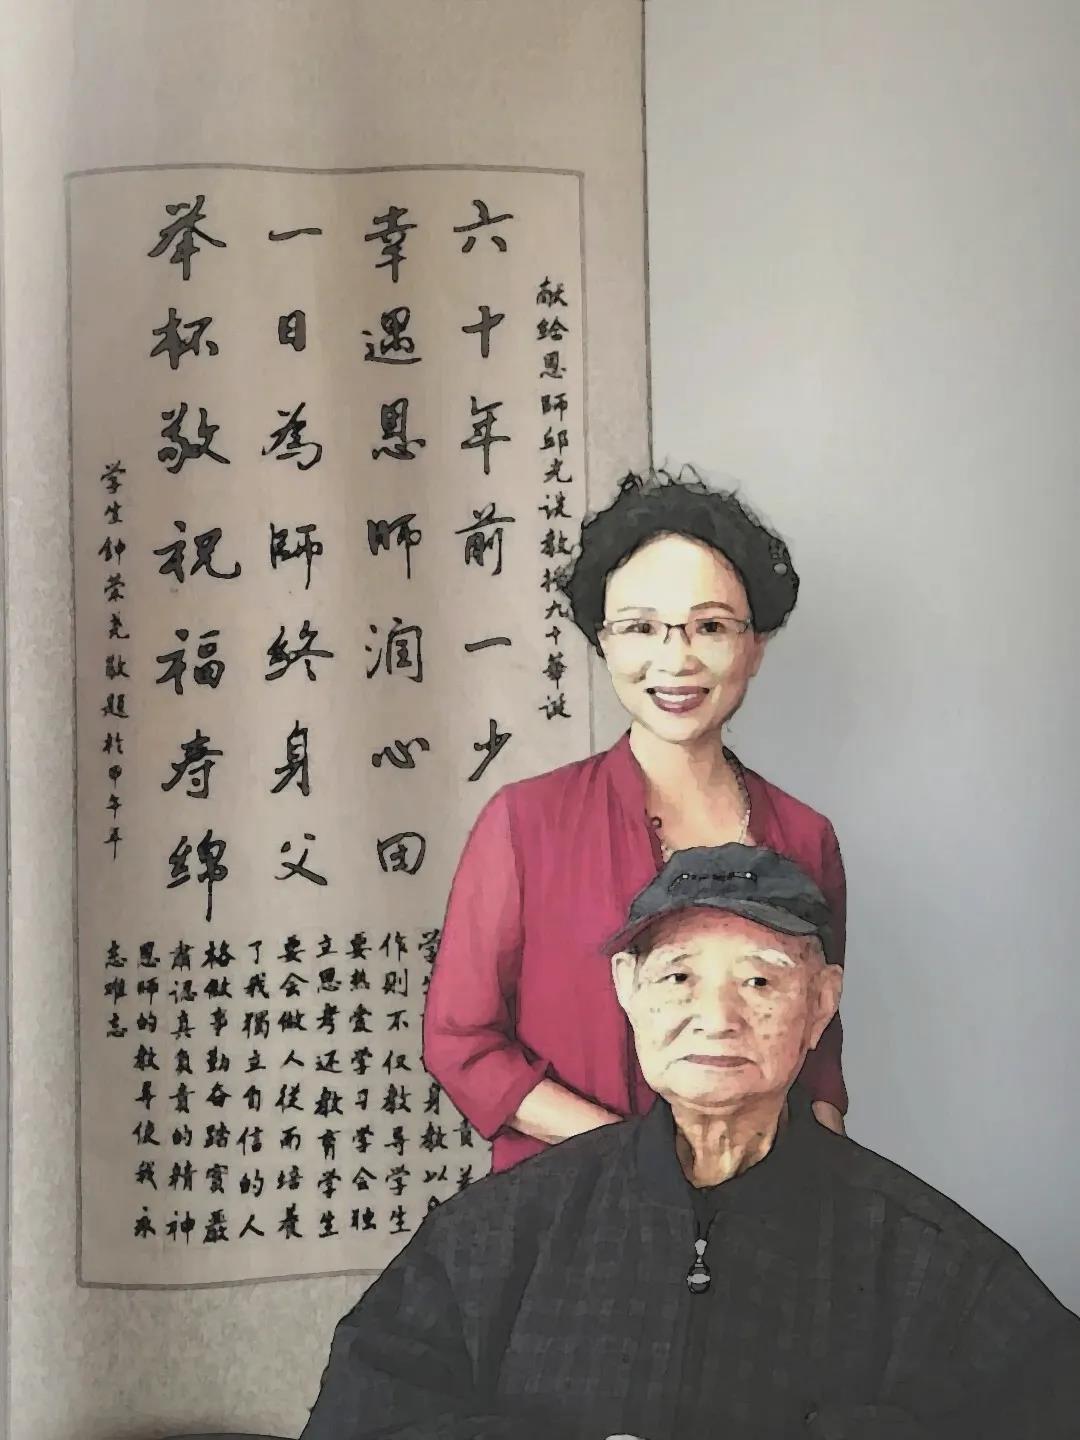 献给恩師邱光教授九十華诞
六十年前一少
幸遇恩师润心田
一日為師終身父
举杯敬祝福寿綿
責
学身教以
作则不仅教导学生
要热爱学习学会独
立思考还教育学生
要会做人從而培養
了我獨立自信的人
格做事勤奋踏實嚴
肅認真負責的精神
恩師的教导使我永
志难忘
学生鈡荣尧敬题於甲午年